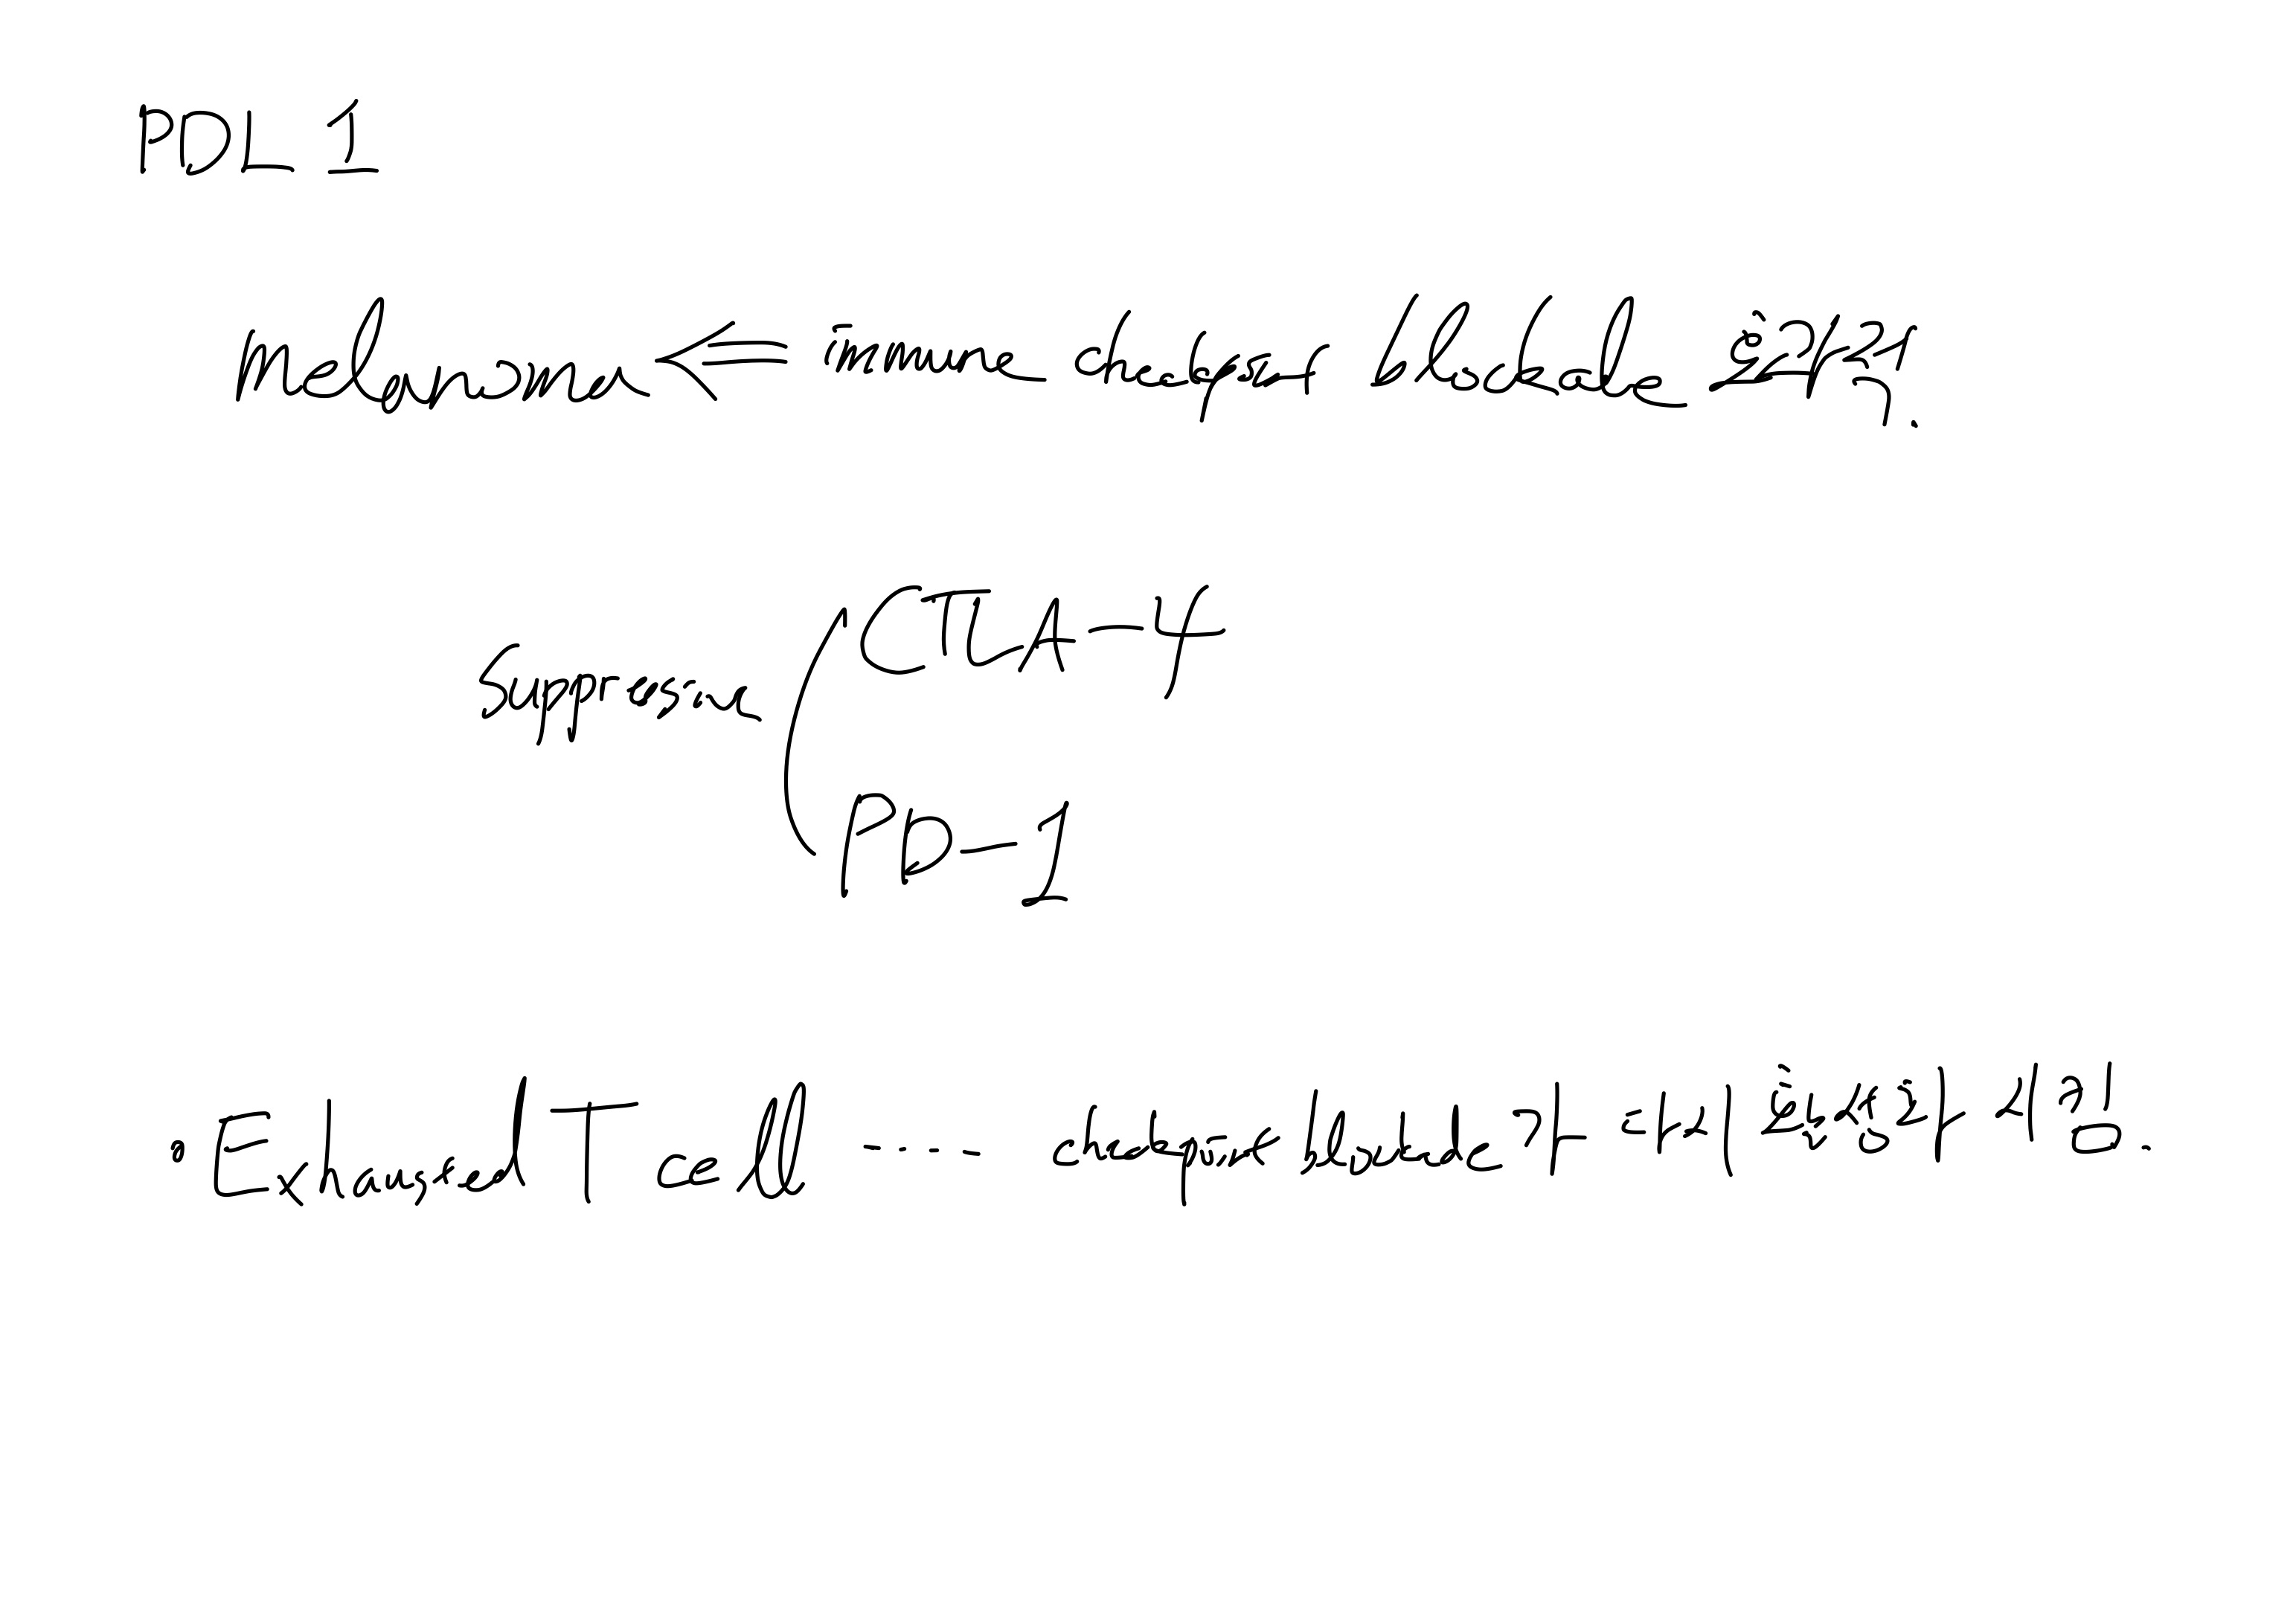 PDL 1
Melanoma ⇐ immune checkpoint blockade 효과적.
Suppressive
CTLA-4
PD-1
Exhausted T cell ---- checkpoint blockade가